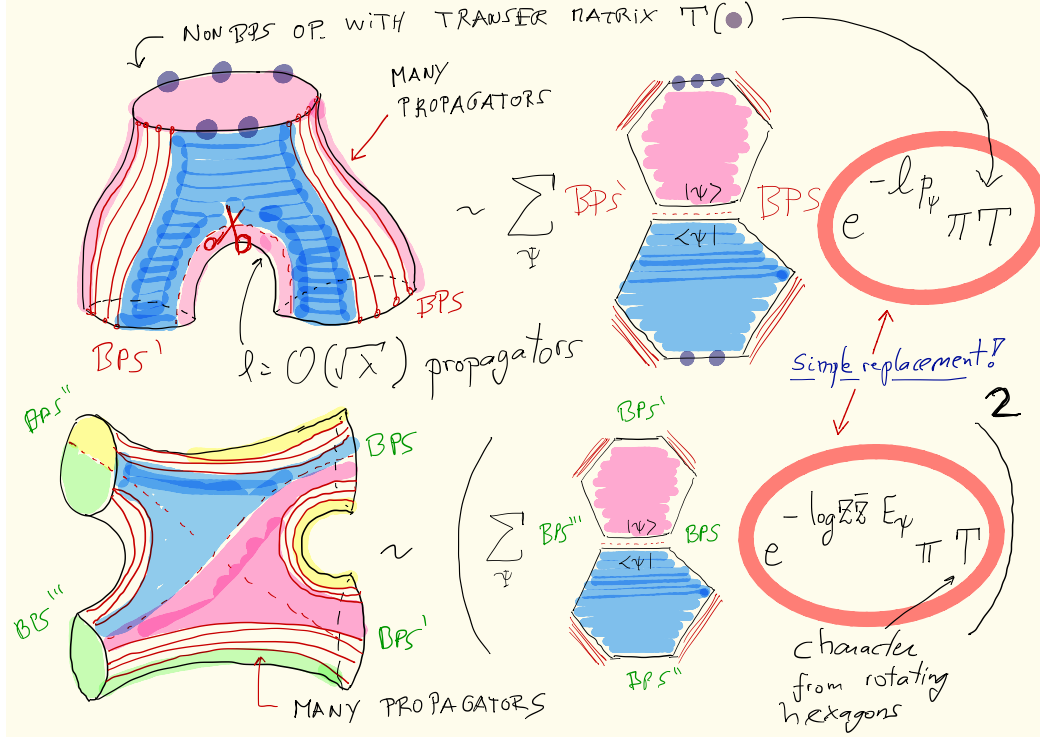 NON BPS OP. WITH TRANSFER MATRIX T(●)
MANY
PROPAGATORS
~ ∑ BPS' |ψ> BPS
ψ
<ψ|
e^{-l p_ψ} π T
BPS'
BPS
l = O(√X) propagators
Simple replacement!
BPS''
BPS
BPS'''
BPS'
MANY PROPAGATORS
2
BPS'
~ ( ∑ BPS''' |ψ> BPS
ψ
<ψ|
BPS''
e^{-log z z̄ E_ψ} π T )
character
from rotating
hexagons